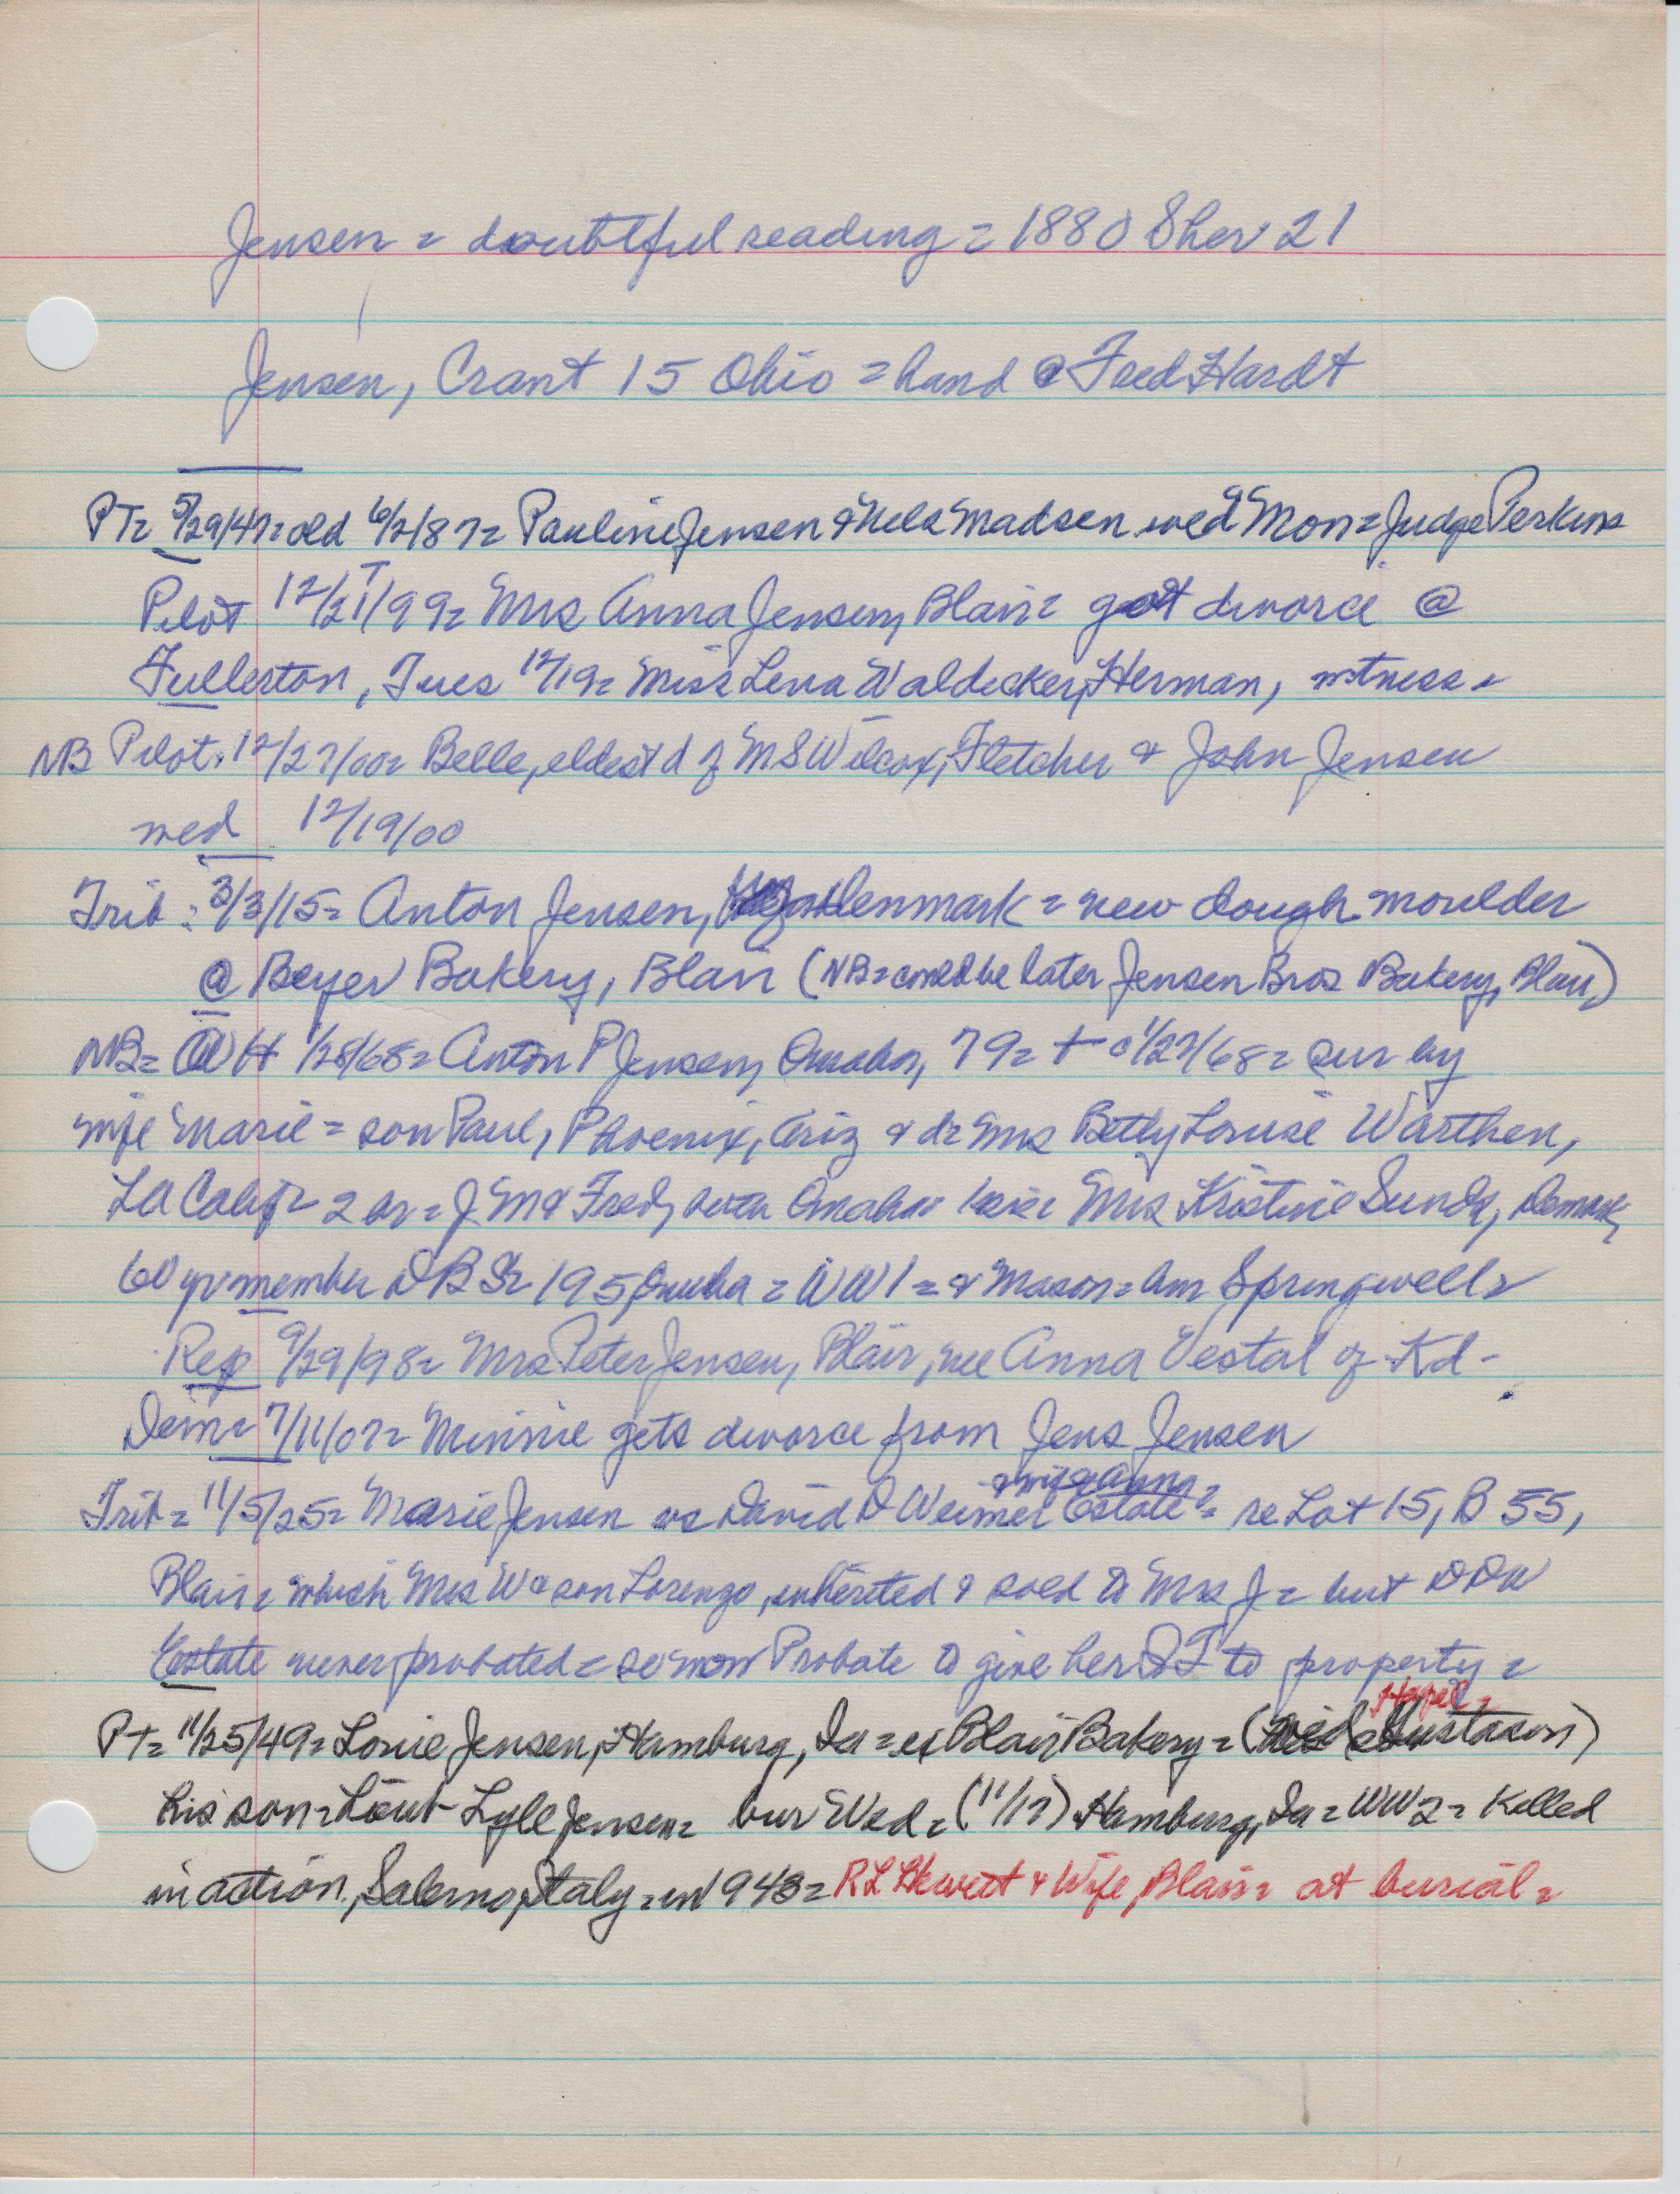 Jensen = doubtful reading = 1880 Sher 21
Jensen, Grant 15 Ohio = hand @ Fred Hardt
PT= 5/29/47= old 6/2/87= Pauline Jensen & Nels Madsen wed Mon = Judge Perkins
Pilot 12/21/99= Mrs Anna Jensen, Blair= got divorce @
Fullerton, Tues 12/19= Miss Lena Waldecker, Herman, witness =
NB Pilot: 12/27/00= Belle, eldest d of M S Wilcox, Fletcher & John Jensen
wed 12/19/00
Trib: 3/3/15= Anton Jensen, Denmark = new dough moulder
@ Beyer Bakery, Blair (NB= could be later Jensen Bros Bakery, Blair)
NB= OWH 1/28/68= Anton P Jensen, Omaha, 79= + 1/27/68= sur by
wife Marie = son Paul, Phoenix, Ariz & dr Mrs Betty Louise Warthen,
LA Calif= 2 br = J M & Fred, Omaha Mrs Kristine Sunds, Denmark,
60 yr member DB So 195 Omaha = WW1 = & Mason = bur Springwell=
Rep 9/29/98= Mrs Peter Jensen, Blair, nee Anna Vestal of Kd -
Dem= 7/11/07= Minnie gets divorce from Jens Jensen
& wife Anna
Trib= 11/5/25= Marie Jensen vs David D Weimer Estate = re Lot 15, B 55,
Blair= which Mrs W & son Lorenzo, inherited & sold to Mrs J= but DDW
Estate never probated = so now Probate to give her QT to property =
Hazel=
PT= 11/25/49= Louie Jensen, Hamburg, Ia = ex Blair Bakery = ( Gustason)
his son = Lout Lyle Jensen= bur Wed = (11/17) Hamburg, Ia = WW2 = Killed
in action, Salerno, Italy = in 1943= R L Hewett & Wife, Blair= at burial=